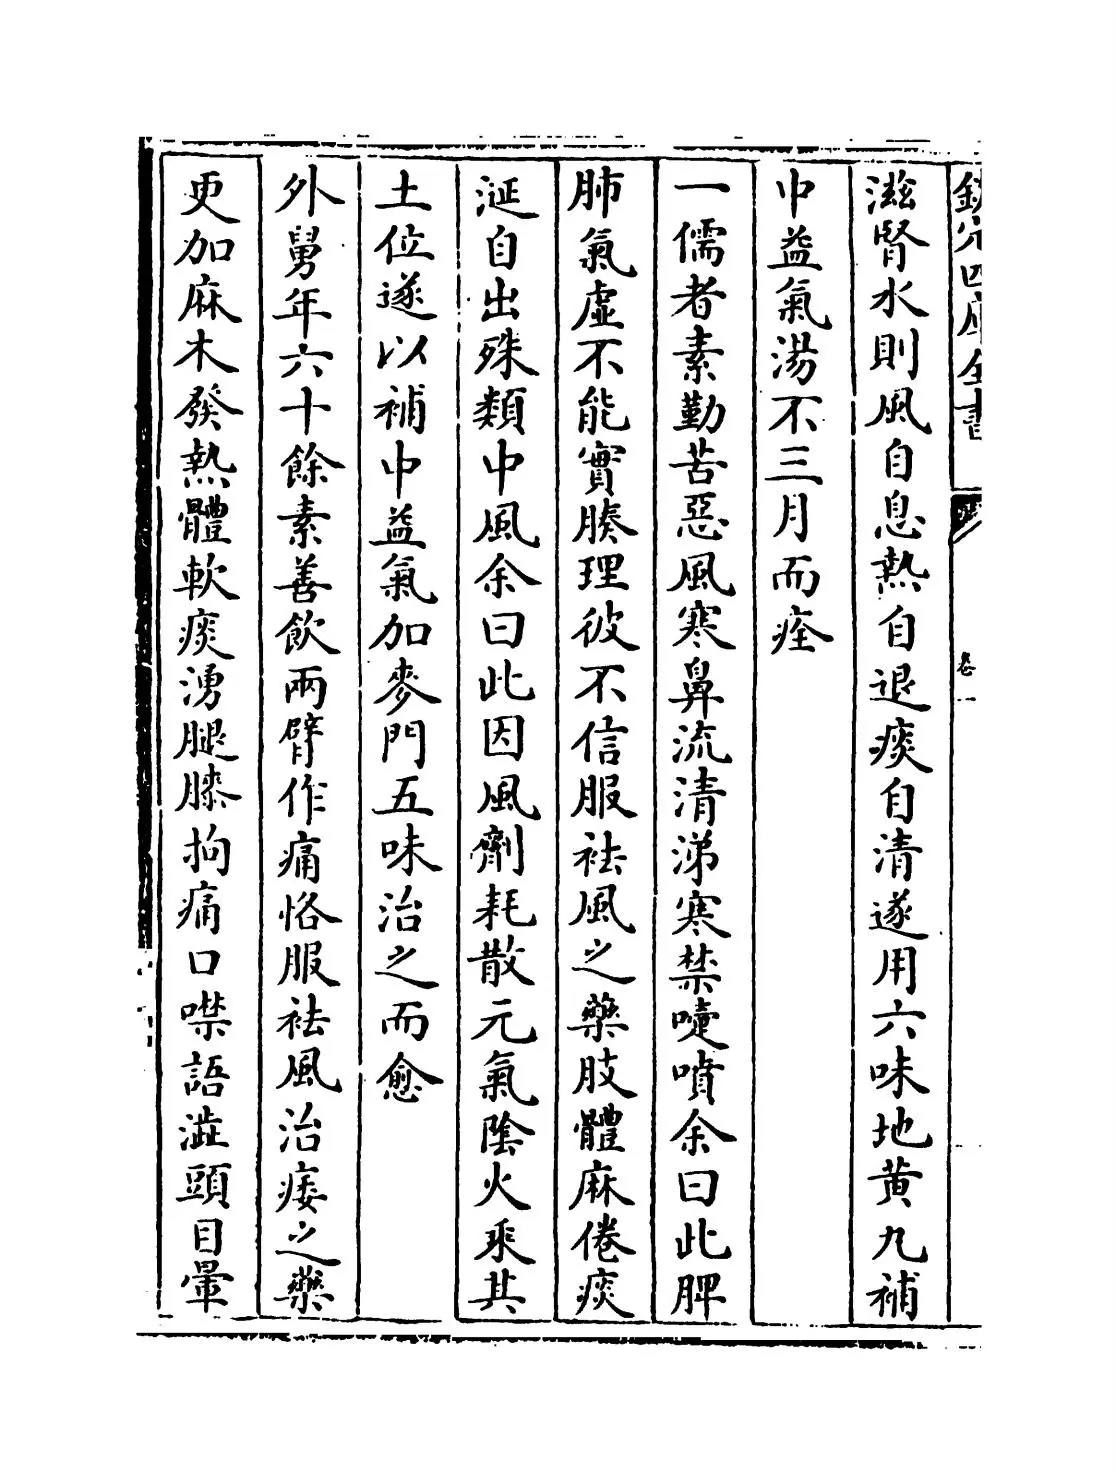 欽定四庫全書
卷一
滋腎水則風自息熱自退痰自清遂用六味地黄丸補
中益氣湯不三月而痊
一儒者素勤苦惡風寒鼻流清涕寒禁嚏噴余曰此脾
肺氣虛不能實腠理彼不信服祛風之藥肢體麻倦痰
涎自出殊類中風余曰此因風劑耗散元氣陰火乘其
土位遂以補中益氣加麥門五味治之而愈
外舅年六十餘素善飲兩臂作痛恪服祛風治痿之藥
更加麻木發熱體軟痰湧腿膝拘痛口噤語澁頭目暈